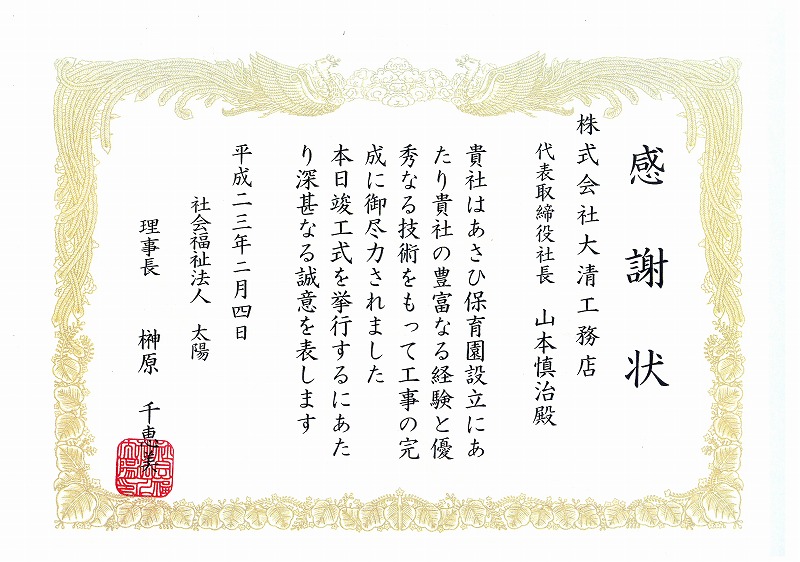 感謝状
株式会社大清工務店
代表取締役社長 山本慎治殿
貴社はあさひ保育園設立にあ
たり貴社の豊富なる経験と優
秀なる技術をもって工事の完
成に御尽力されました
本日竣工式を挙行するにあた
り深甚なる誠意を表します
平成二三年二月四日
社会福祉法人 太陽
理事長 榊原 千恵美